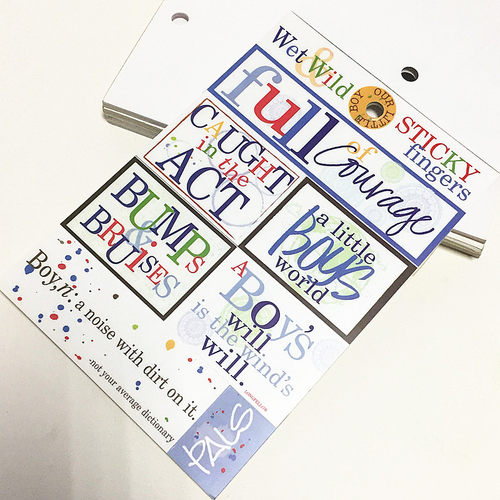 Wet & Wild
OUR LITTLE BOY
STICKY
fingers
full of
Courage
CAUGHT
in the
ACT
a little
BOY'S
world
BUMPS
&
BRUiSES
A
BOY'S
will
is the wind's
will.
Boy,n. a noise with dirt on it.
-not your average dictionary
PALS